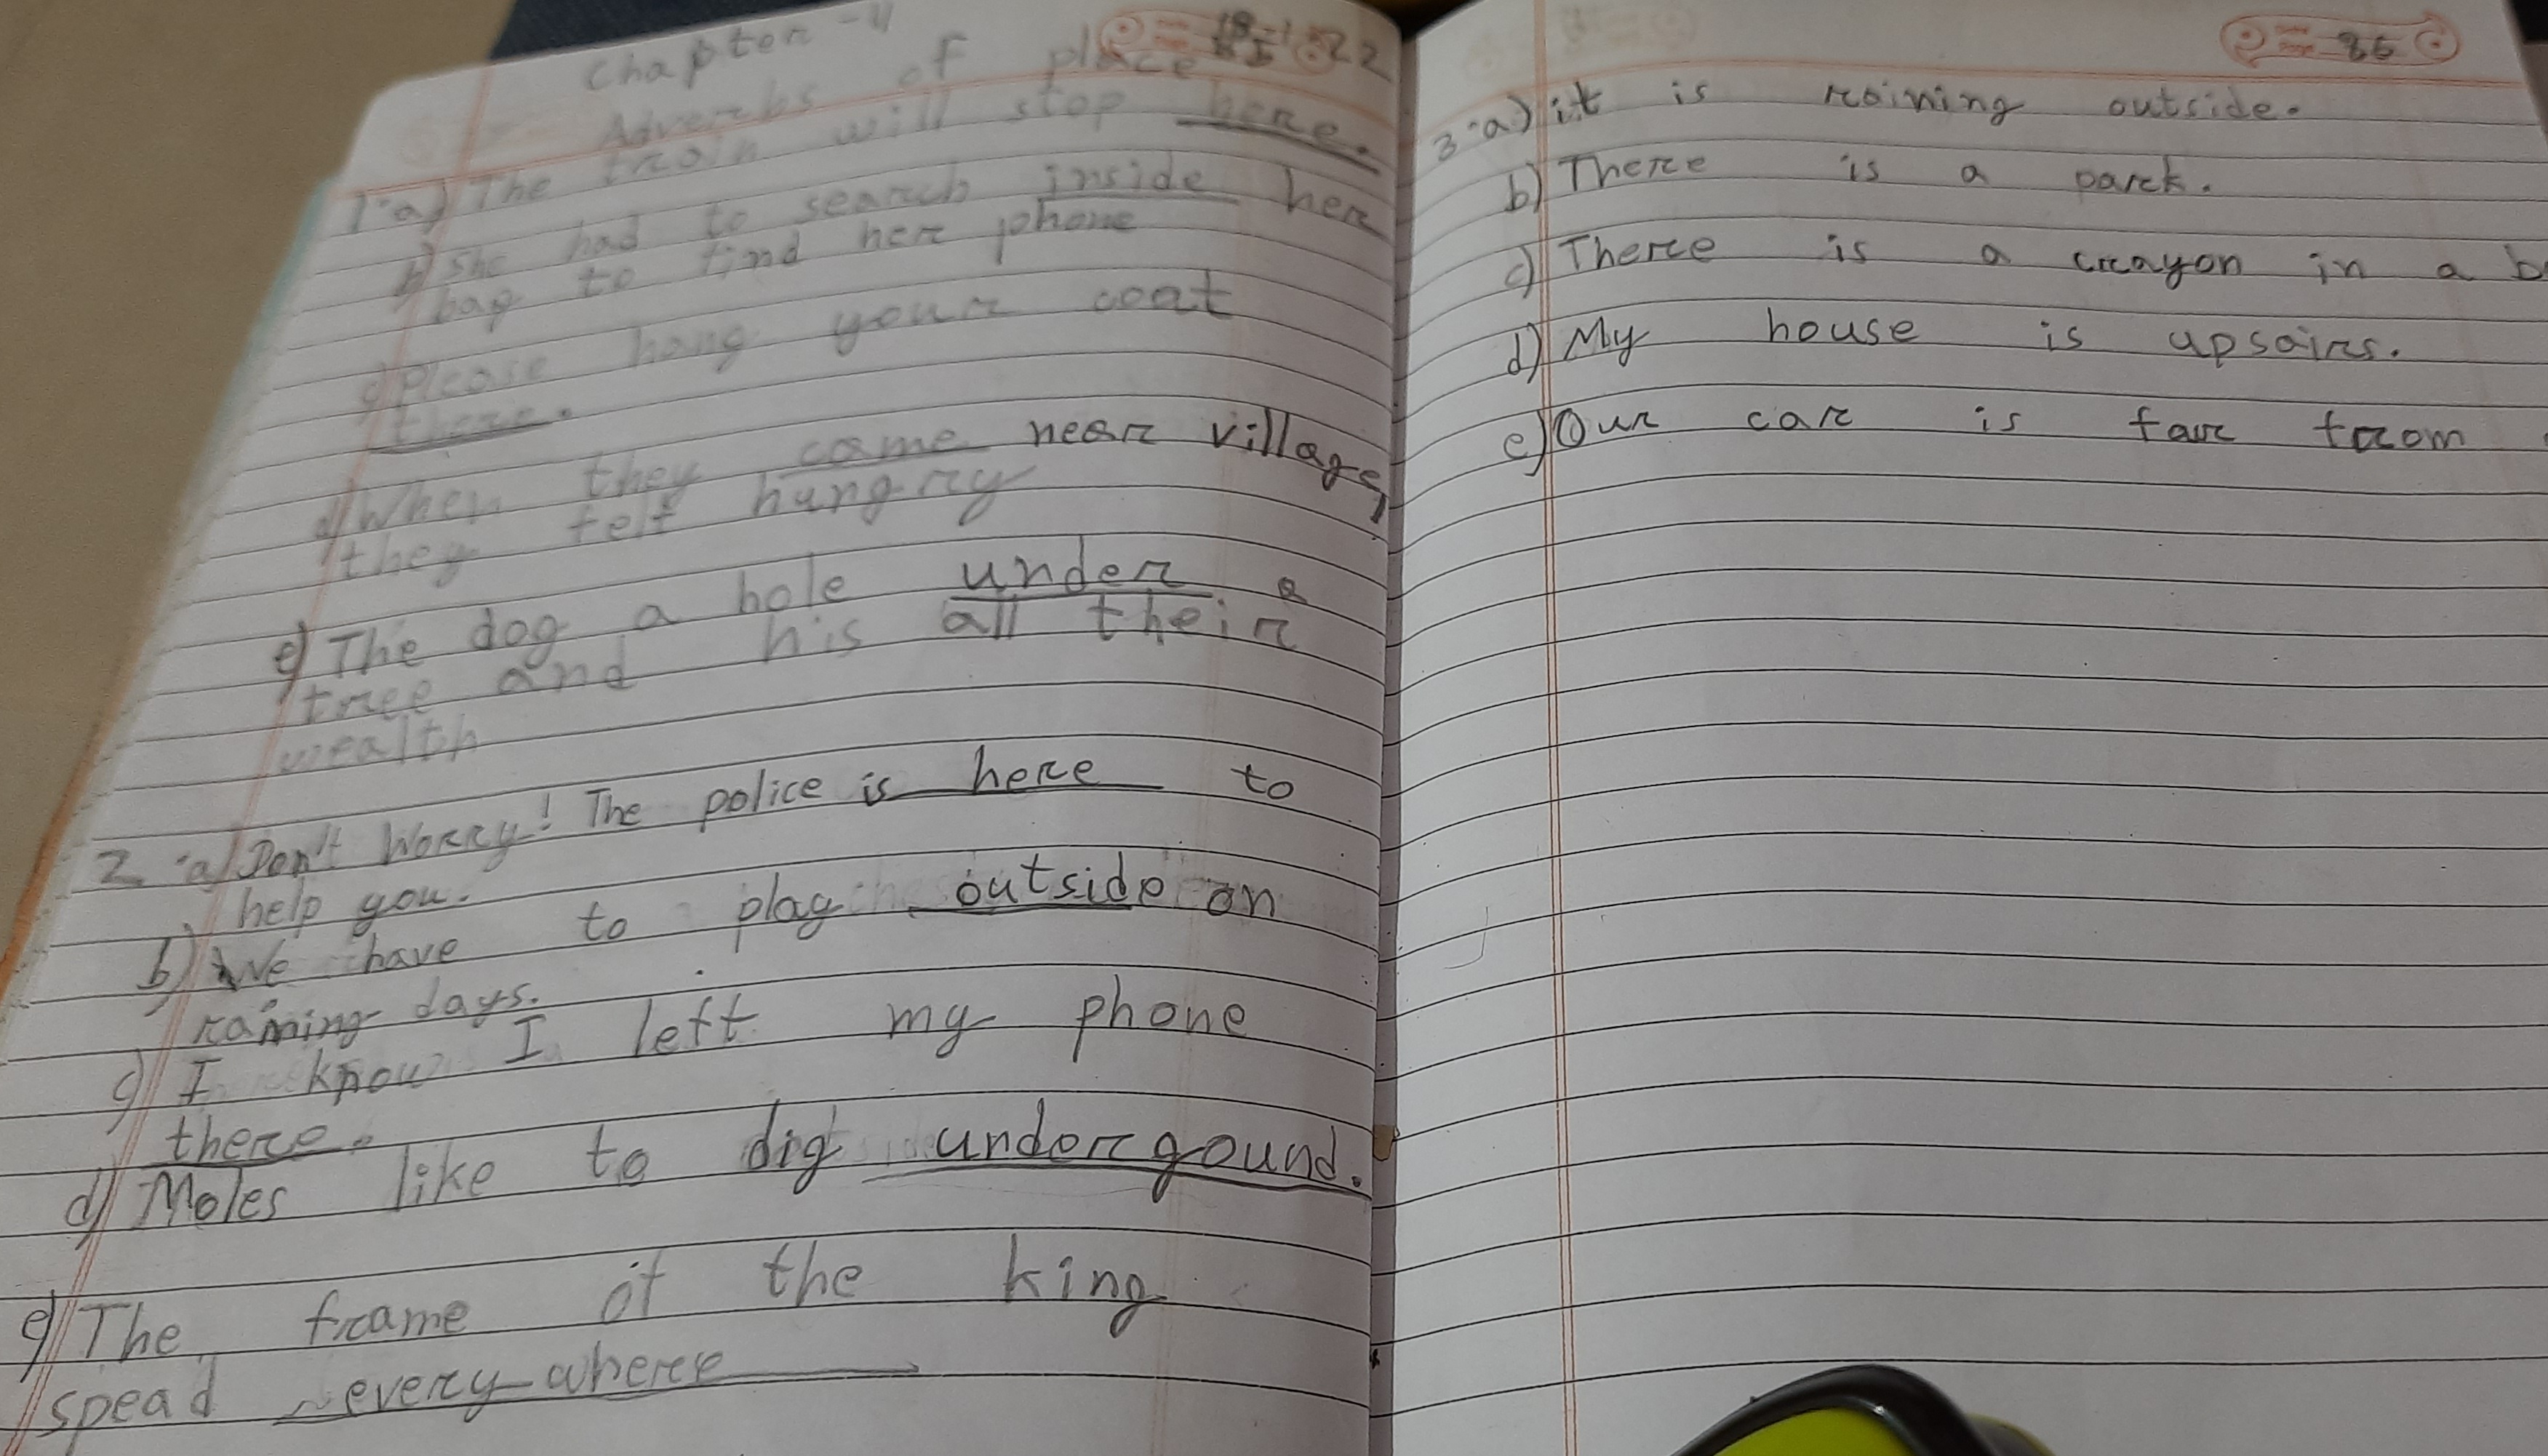 Chapter - 4
Adverbs of place
1.a) The train will stop here.
b) She had to search inside her
bag to find her phone
c) Please hang your coat
there.
d) When they came near village,
they felt hungry
e) The dog a hole under a
tree and his all their
wealth
2.a) Don't Worry! The police is here to
help you.
b) We have to play outside on
raining days.
c) I know I left my phone
there.
d) Moles like to dig undergound.
e) The frame of the king
spead every where
86
3.a) it is raining outside.
b) There is a park.
c) There is a crayon in a
d) My house is upsairs.
e) Our car is far from